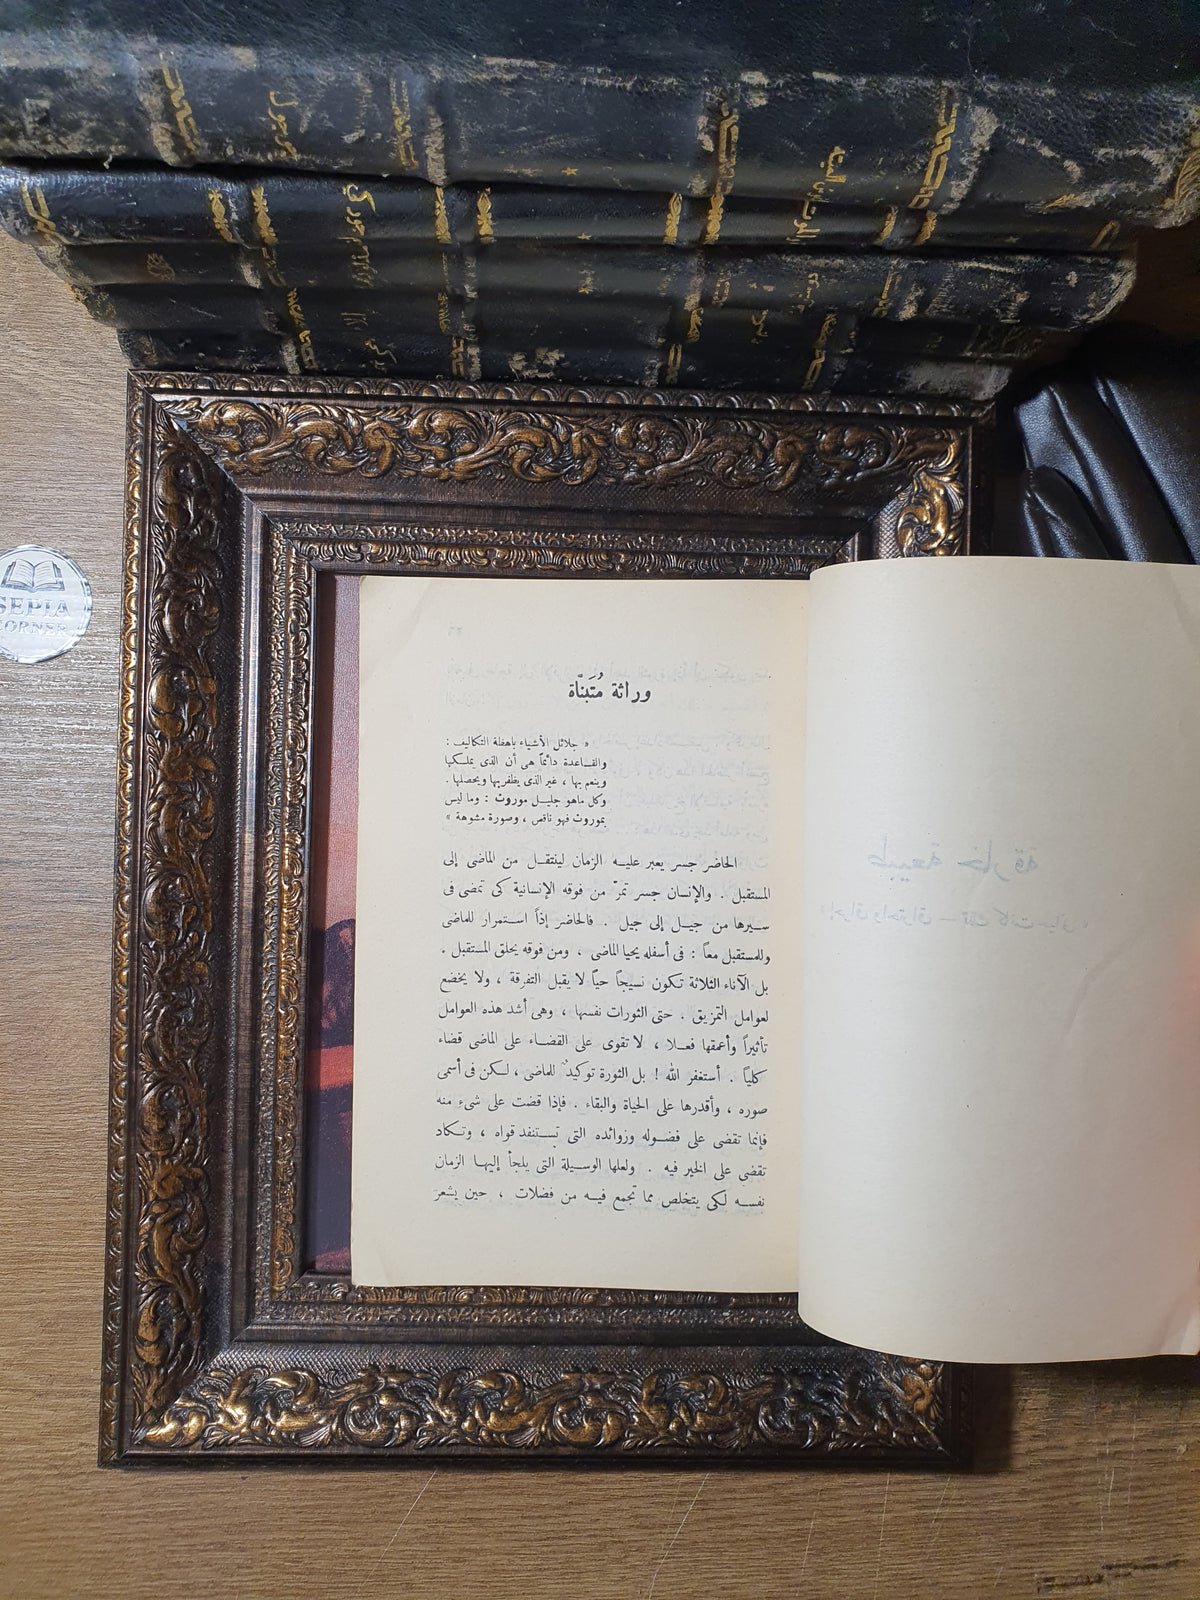 SEPIA
CORNER
وراثة مُتَبنّاة
« جلائل الأشياء باهظة التكاليف :
والقاعدة دائماً هى أن الذى يملكها
وينعم بها ، غير الذى يظفر بها ويحصلها .
وكل ماهو جليل موروث : وما ليس
بموروث فهو ناقص ، وصورة مشوهة »
الحاضر جسر يعبر عليه الزمان لينتقل من الماضى إلى
المستقبل . والإنسان جسر تمرّ من فوقه الإنسانية كى تمضى فى
سيرها من جيل إلى جيل . فالحاضر إذاً استمرار للماضى
وللمستقبل معاً : فى أسفله يحيا الماضى ، ومن فوقه يحلق المستقبل .
بل الآناء الثلاثة تكون نسيجاً حيّاً لا يقبل التفرقة ، ولا يخضع
لعوامل التمزيق . حتى الثورات نفسها ، وهى أشد هذه العوامل
تأثيراً وأعمقها فعلا ، لا تقوى على القضاء على الماضى قضاء
كلياً . أستغفر الله ! بل الثورة توكيد للماضى ، لكن فى أسمى
صوره ، وأقدرها على الحياة والبقاء . فإذا قضت على شىء منه
فإنما تقضى على فضوله وزوائده التى تستنفد قواه ، وتكاد
تقضى على الخير فيه . ولعلها الوسيلة التى يلجأ إليها الزمان
نفسه لكى يتخلص مما تجمع فيه من فضلات ، حين يشعر